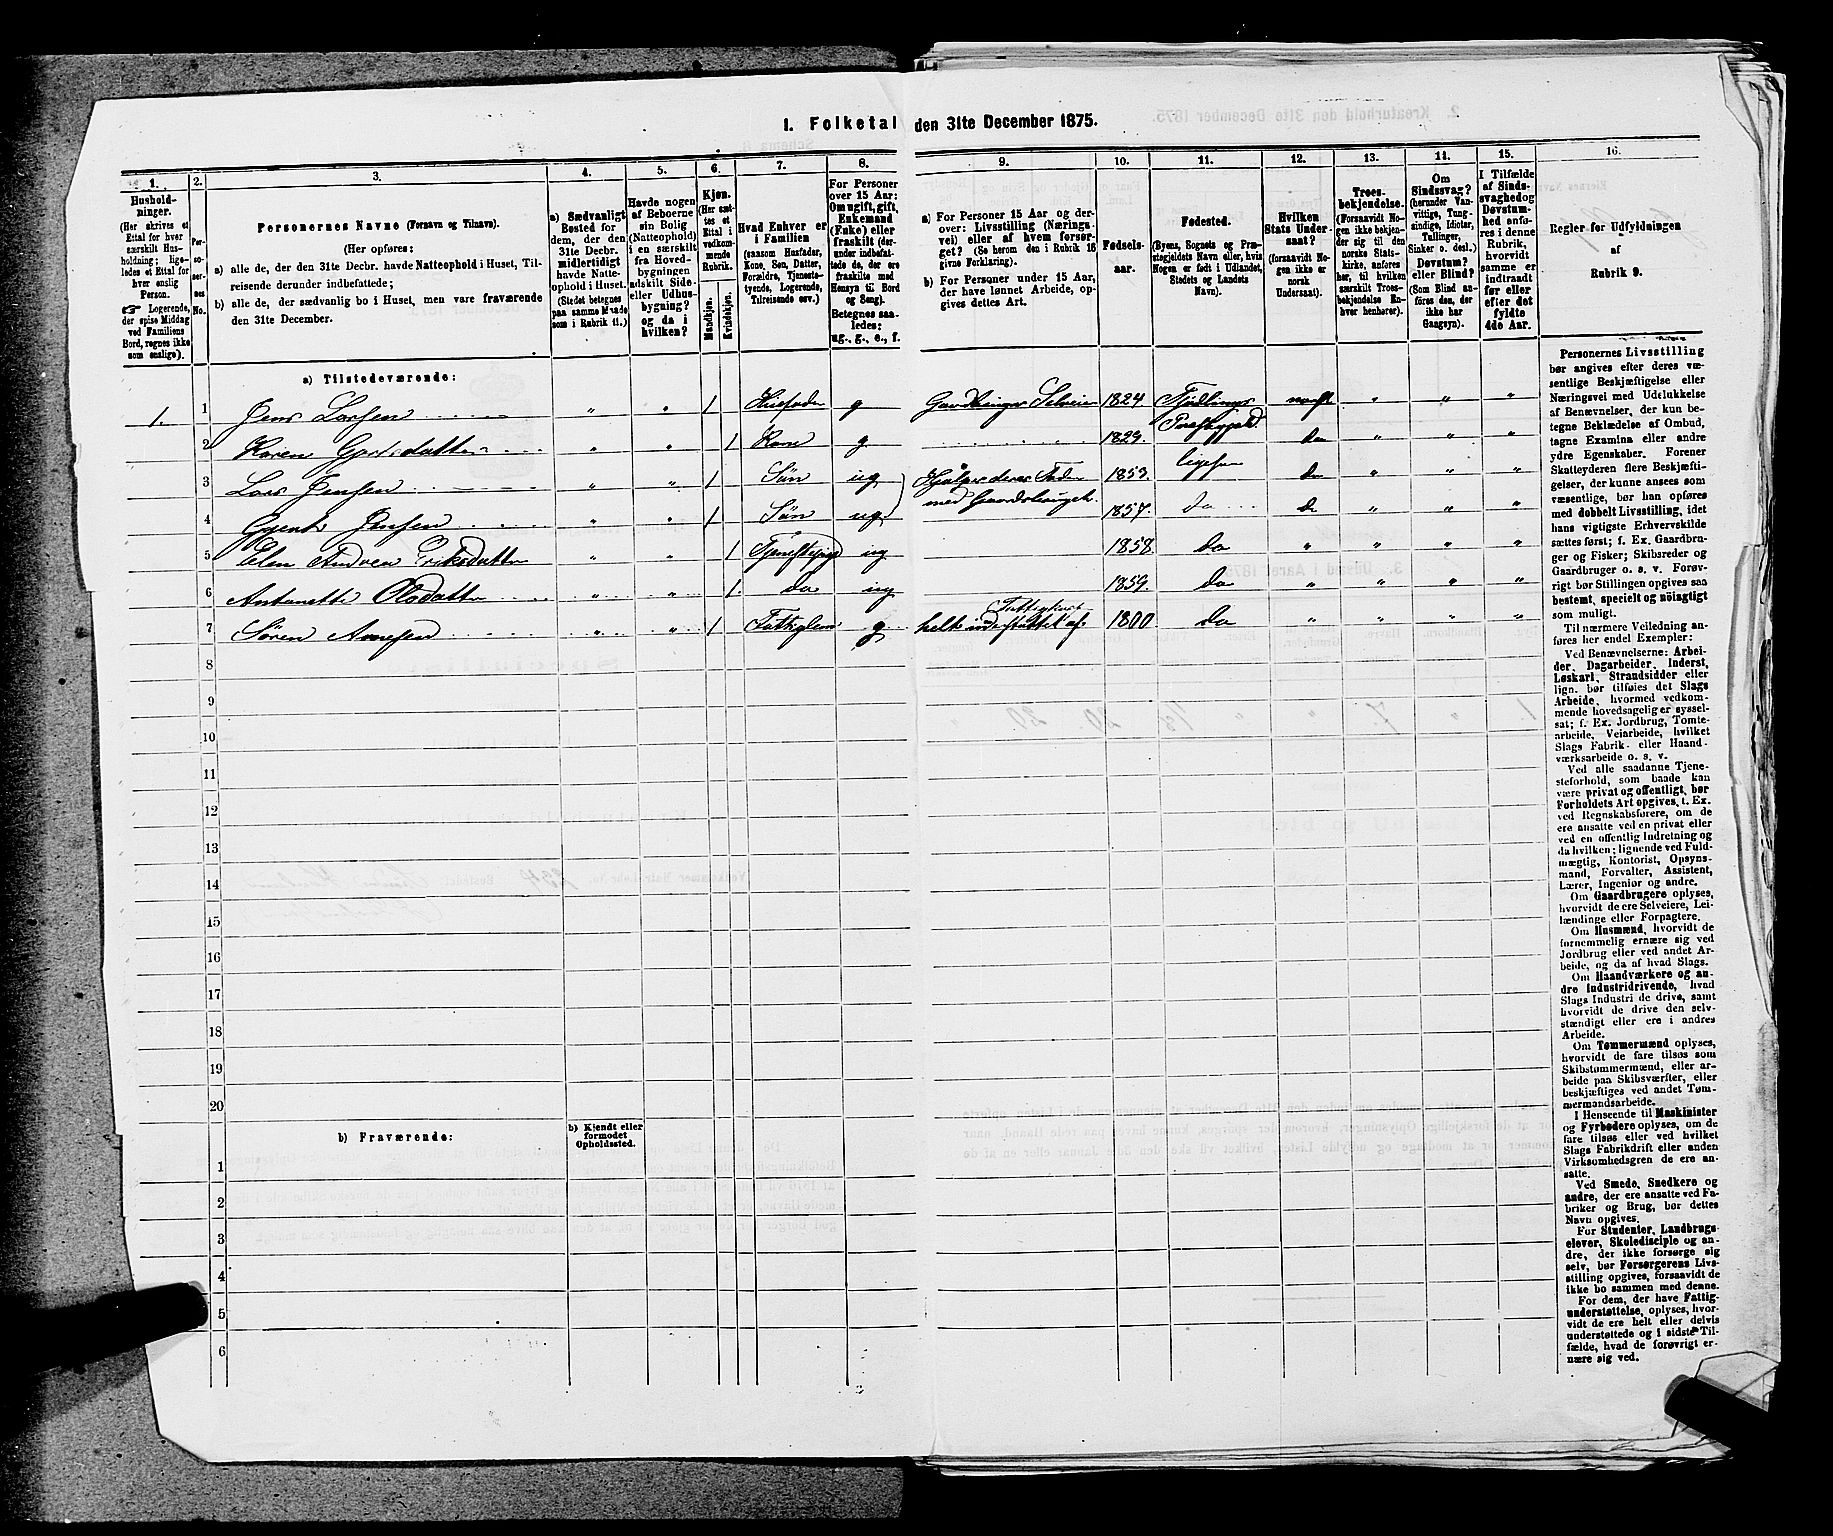 1. Folketal den 31te December 1875.
1.
Husholdninger.
(Her skrives et Ettal for hver særskilt Husholdning; ligeledes et Ettal for hver enslig Person.
☞ Logerende, der spise Middag ved Familiens Bord, regnes ikke som enslige).
2.
Personernes No.
3.
Personernes Navne (Fornavn og Tilnavn).
(Her opføres:
a) alle de, der den 31te Decbr. havde Natteophold i Huset, Tilreisende derunder indbefattede;
b) alle de, der sædvanlig bo i Huset, men vare fraværende den 31te December.
4.
a) Sædvanligt Bosted for dem, der den 31te Decbr. midlertidigt havde Natteophold i Huset. (Stedet betegnes paa samme Maade som i Rubrik 11.)
5.
Havde nogen af Beboerne sin Bolig (Natteophold) i en særskilt fra Hovedbygningen adskilt Side- eller Udhusbygning? og da i hvilken?
6.
Kjøn.
(Her sættes et Ettal i vedkommende Rubrik.
Mandkjøn.
Kvindekjøn.
7.
Hvad Enhver er i Familien
(saasom Husfader, Kone, Søn, Datter, Forældre, Tjenestetyende, Logerende, Tilreisende osv.)
8.
For Personer over 15 Aar: Om ugift, gift, Enkemand (Enke) eller fraskilt (derunder indbefattede de, der ere fraskilte med Hensyn til Bord og Seng). Betegnes saaledes: ug., g., e., f.
9.
a) For Personer 15 Aar og derover: Livsstilling (Næringsvei) eller af hvem forsørget? (Se herom den i Rubrik 16 givne Forklaring).
b) For Personer under 15 Aar, der have lønnet Arbeide, opgives dettes Art.
10.
Fødselsaar.
11.
Fødested.
(Byens, Sognets og Præstegjeldets Navn eller, hvis Nogen er født i Udlandet, Stedets og Landets Navn).
12.
Hvilken Stats Undersaat?
(forsaavidt Nogen ikke er norsk Undersaat).
13.
Troesbekjendelse.
(Forsaavidt Nogen ikke bekjender sig til den norske Statskirke, anføres her, til hvilken særskilt Troesbekjendelse Enhver henhører).
14.
Om Sindssvag?
(herunder Vanvittige, Tungsindige, Idioter, Tullinger, Sinker o. desl.)
Døvstum? eller Blind?
(Som Blind anføres den, der ikke har Gangsyn).
15.
I Tilfælde af Sindssvaghed og Døvstumhed anføres i denne Rubrik, hvorvidt samme er indtraadt før eller efter det fyldte 4de Aar.
16.
Regler for Udfyldningen
af
Rubrik 9.
a) Tilstedeværende:
1. 1 Jens Larsen " " 1 Husfader g Gaardbruger Selveier 1824 norsk " " "
2 Karen " " 1 Kone g 1829. do " " "
3 Lars Jensen " " 1 Søn ug Hjælper deres Fader 1853. ligesaa do " " "
4 Gjent Jensen " " 1 Søn ug med Gaardsbruget. 1857. do do " " "
5 Elen Andrea Eriksdatter " " 1 Tjenestepige ug 1858. do " " " "
6 Antonette Olsdatter " " 1. do ug 1859. do " " " "
7 Søren " " 1 Fattiglem g helt understøttet af Fattigkas 1800 do " " " "
8
9
10
11
12
13
14
15
16
17
18
19
20
b) Fraværende:
b) Kjendt eller formodet Opholdssted.
1
2
3
4
5
6
Personernes Livsstilling
bør angives efter deres væ-
sentlige Beskjæftigelse eller
Næringsvei med Udelukkelse
af Benævnelser, der kun be-
tegne Beklædelse af Ombud,
tagne Examina eller andre
ydre Egenskaber. Forener
Skatteyderen flere Beskjæfti-
gelser, der kunne ansees som
væsentlige, bør han opføres
med dobbelt Livsstilling, idet
hans vigtigste Erhvervskilde
sættes først; f. Ex. Gaardbru-
ger og Fisker; Skibsreder og
Gaardbruger o. s. v. Forøv-
rigt bør Stillingen opgives saa
bestemt, specielt og nöiagtigt
som muligt.
Til nærmere Veiledning an-
føres her endel Exempler:
Ved Benævnelserne: Arbei-
der, Dagarbeider, Inderst,
Løskarl, Strandsidder eller
lign. bør tilføies det Slags
Arbeide, hvormed vedkom-
mende hovedsagelig er syssel-
sat; f. Ex. Jordbrug, Tomte-
arbeide, Veiarbeide, hvilket
Slags Fabrik- eller Haand-
værksarbeide o. s. v.
Ved alle saadanne Tjene-
steforhold, som baade kan
være privat og offentligt, bør
Forholdets Art opgives, t. Ex.
ved Regnskabsførere, om de
ere ansatte ved en privat eller
ved en offentlig Indretning og
da hvilken; lignende ved Fuld-
mægtig, Kontorist, Opsyns-
mand, Forvalter, Assistent,
Lærer, Ingeniør og andre.
Om Gaardbrugere oplyses,
hvorvidt de ere Selveiere, Lei-
lændinge eller Forpagtere.
Om Husmænd, hvorvidt de
fornemmelig ernære sig ved
Jordbrug eller ved andet Ar-
beide, og da af hvad Slags.
Om Haandværkere og an-
dre Industridrivende, hvad
Slags Industri de drive, samt
hvorvidt de drive den selv-
stændigt eller ere i andres
Arbeide.
Om Tømmermænd oplyses,
hvorvidt de fare tilsøs som
Skibstømmermænd, eller ar-
beide paa Skibsværfter, eller
beskjæftiges ved andet Tøm-
mermandsarbeide.
I Henseende til Maskinister
og Fyrbødere oplyses, om de
fare tilsøs eller ved hvilket
Slags Fabrikdrift eller anden
Virksomhedsgren de ere an-
satte.
Ved Smede, Snedkere og
andre, der ere ansatte ved Fa-
briker og Brug, bør dettes
Navn opgives.
For Studenter, Landbrugs-
elever, Skoledisciple og an-
dre, der ikke forsørge sig
selv, bør Forsørgerens Livs-
stilling opgives, forsaavidt de
ikke bo sammen med denne.
For dem, der have Fattig-
understøttelse, oplyses, hvor-
vidt de ere helt eller delvis
understøttede og i sidste Til-
fælde, hvad de forøvrigt er-
nære sig ved.